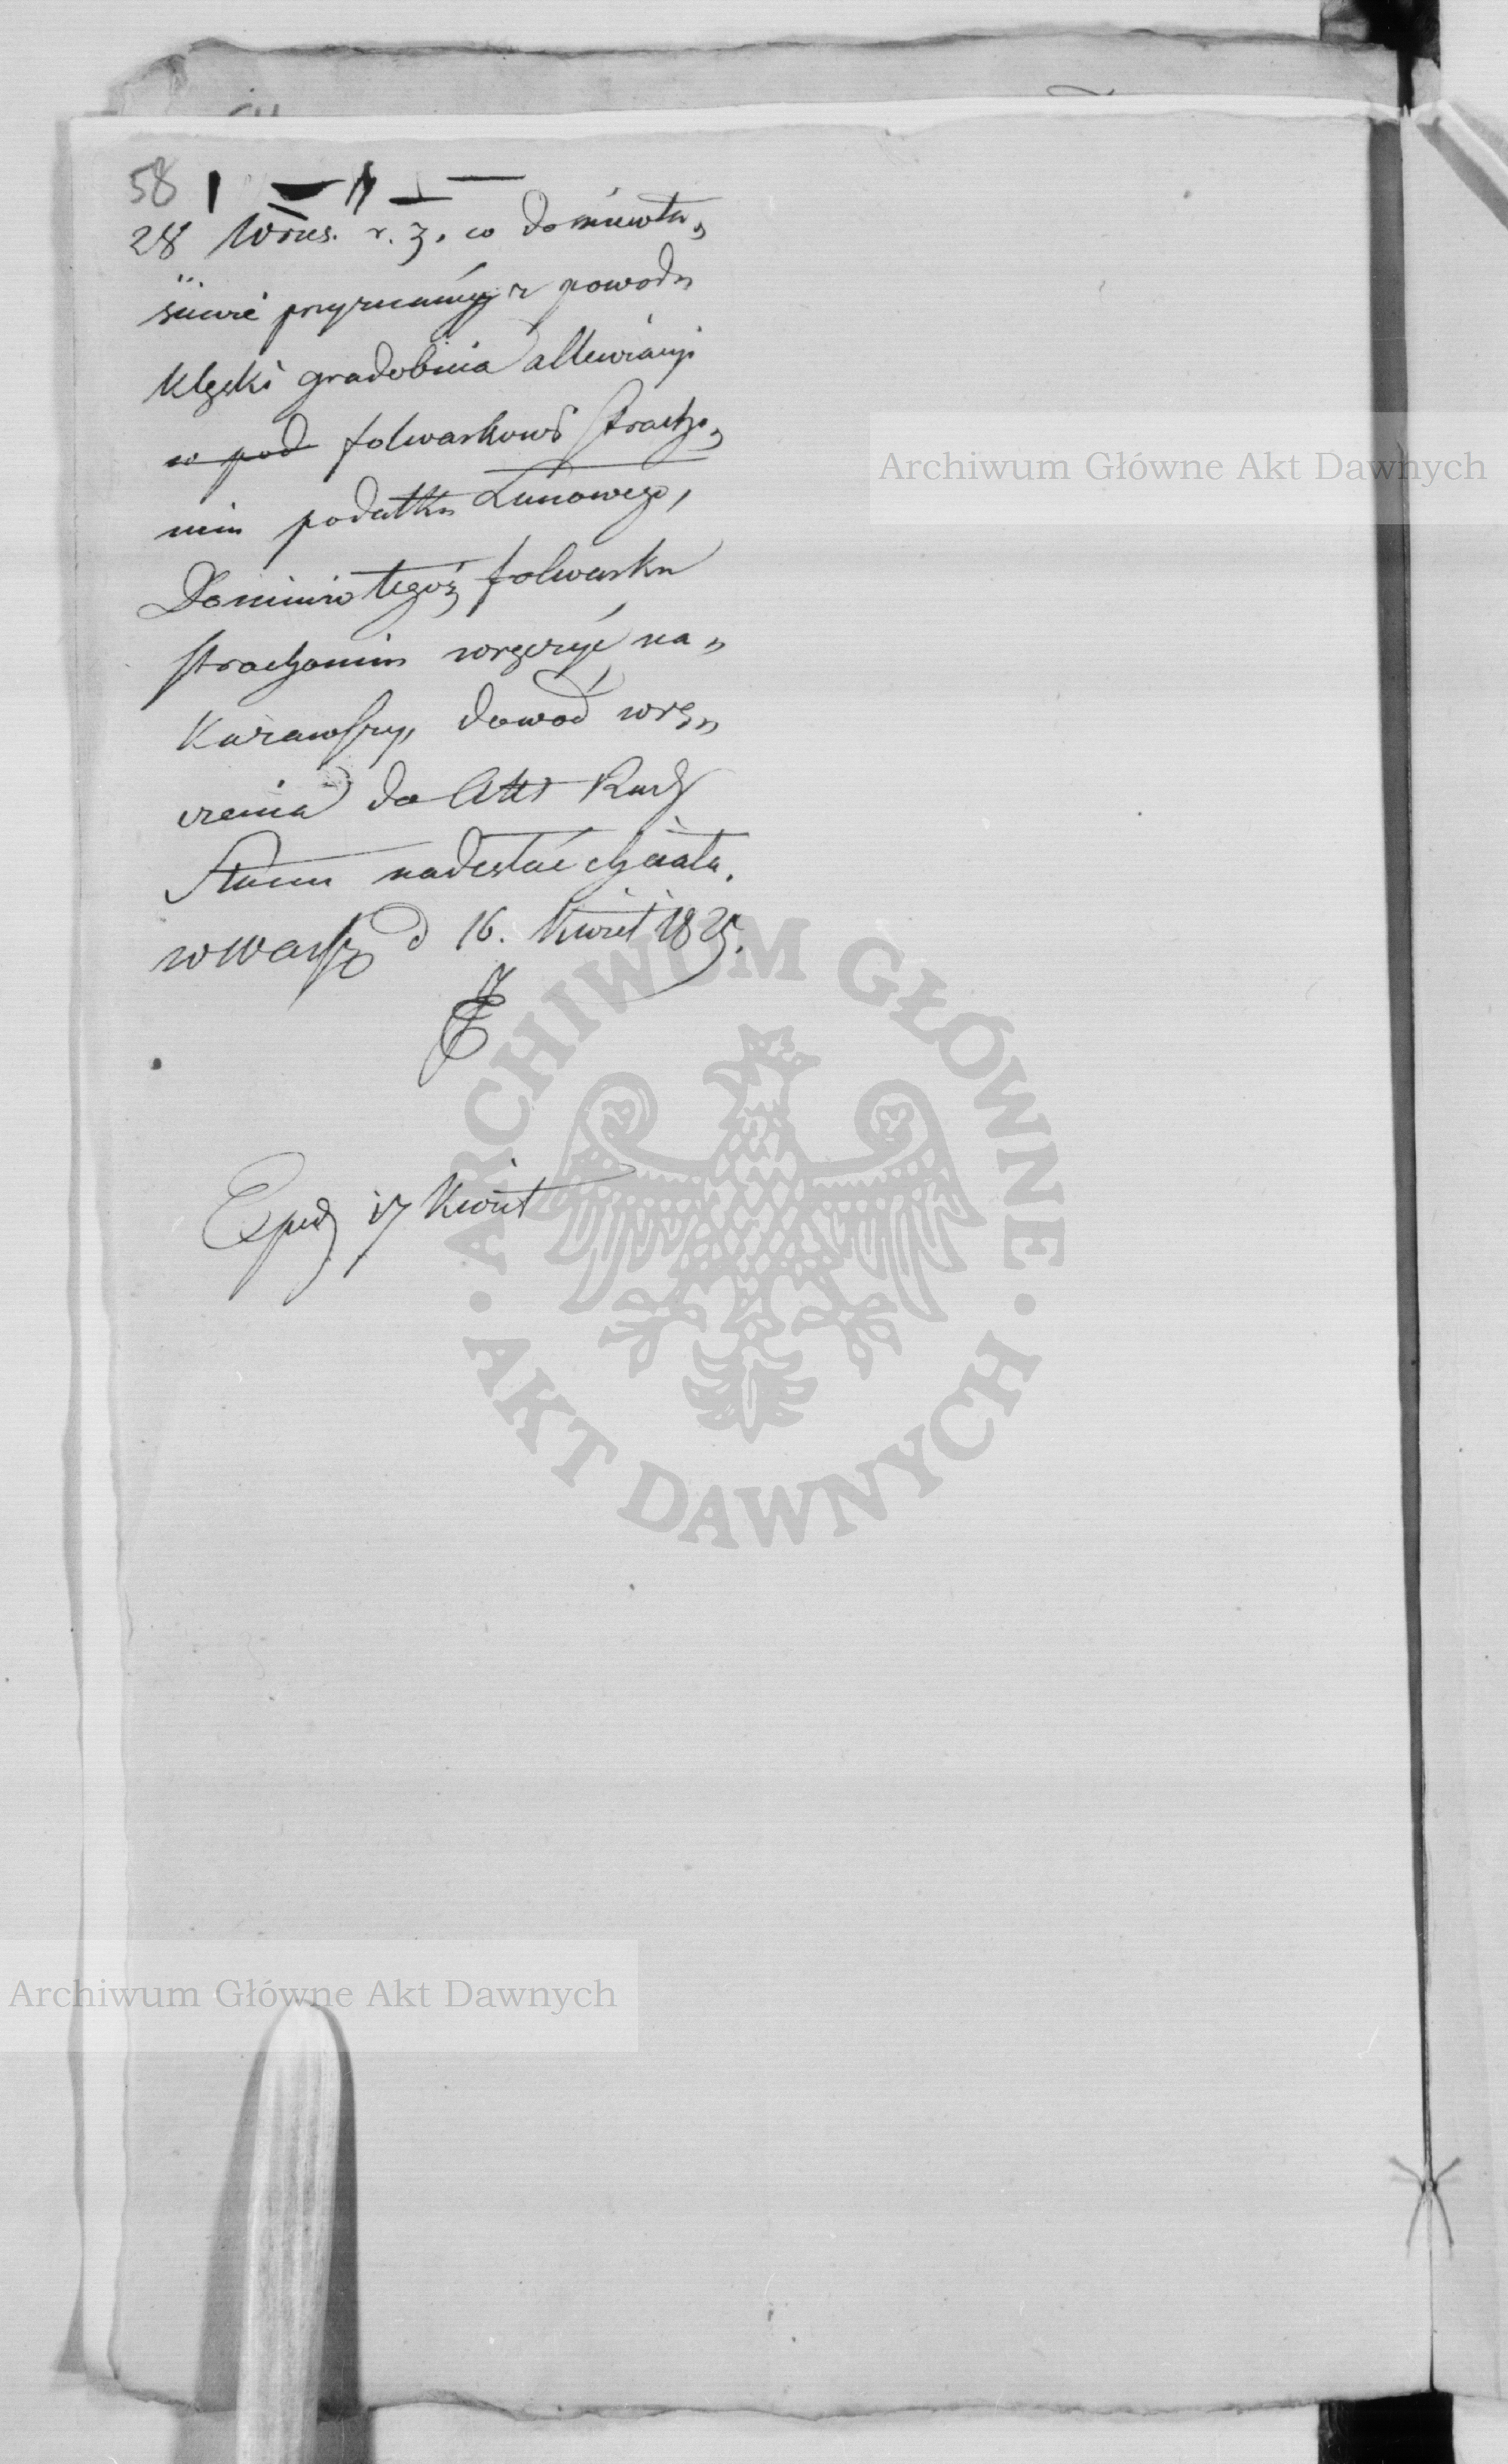 58
28 Wrześ. r. z. co do niewła„
ściwie przyznanéy z powodu
klęski gradobicia allewiacyi
w pod folwarkowi Stracho„
min podatku Łanowego,
Dominio tegoż folwarku
Strachomin wręczyć na„
kazawszy, dowód wrę„
czenia do Akt Rady
Stanu nadesłać chciała.
w Warsz d 16. Kwiet 1825.
Exped 17 Kwiet
Archiwum Główne Akt Dawnych
ARCHIWUM GŁÓWNE
AKT DAWNYCH
Archiwum Główne Akt Dawnych